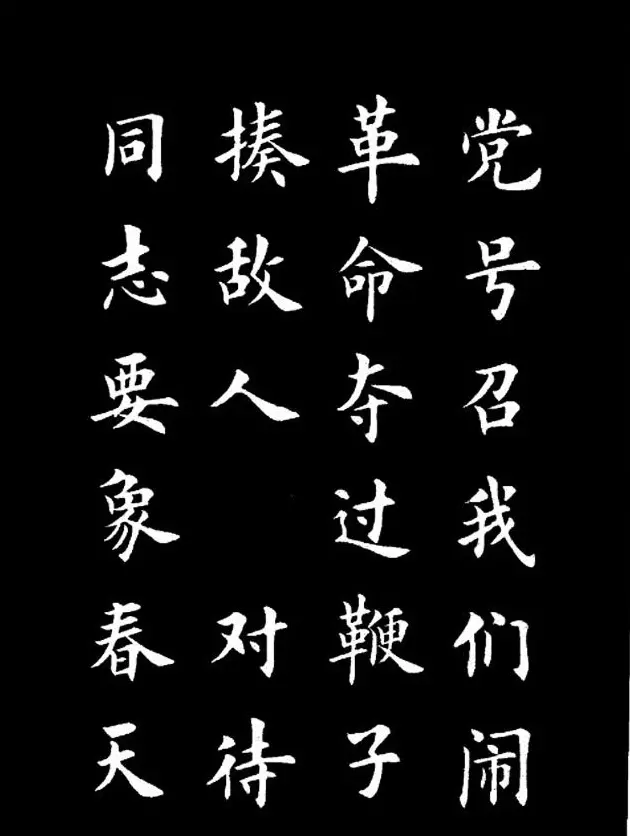 党号召我们闹
革命夺过鞭子
揍敌人 对待
同志要象春天